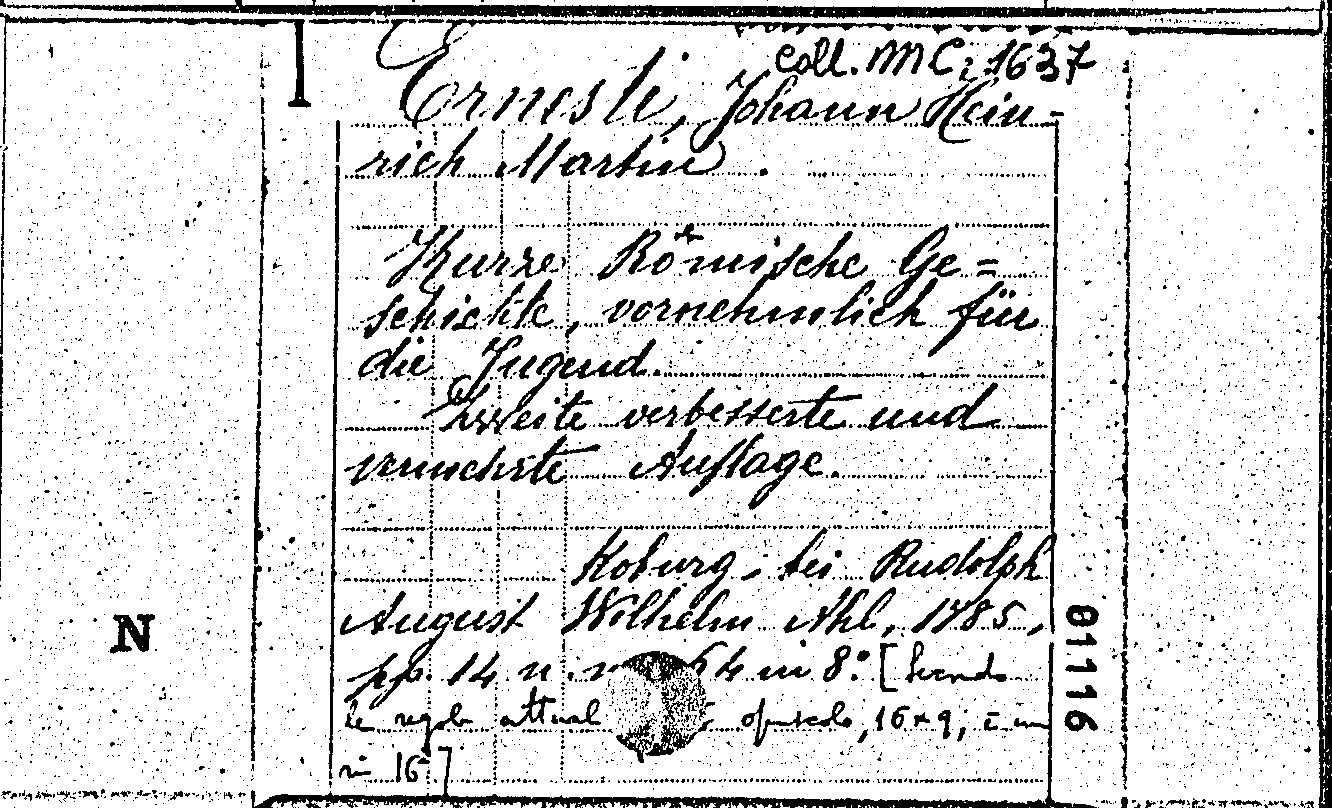 coll. MC: 1637
Ernesti, Johann Hein-
rich Martin.
Kurze Römische Ge=
schichte, vornehmlich für
die Jugend.
Zweite verbesserte und
vermehrte Auflage.
Koburg, bei Rudolph
August Wilhelm Ahl, 1785,
pp. 14 n. n. 64 in 8.° [Secondo
le regole attual opuscolo, 16x9, è un
in 16°]
N
81116